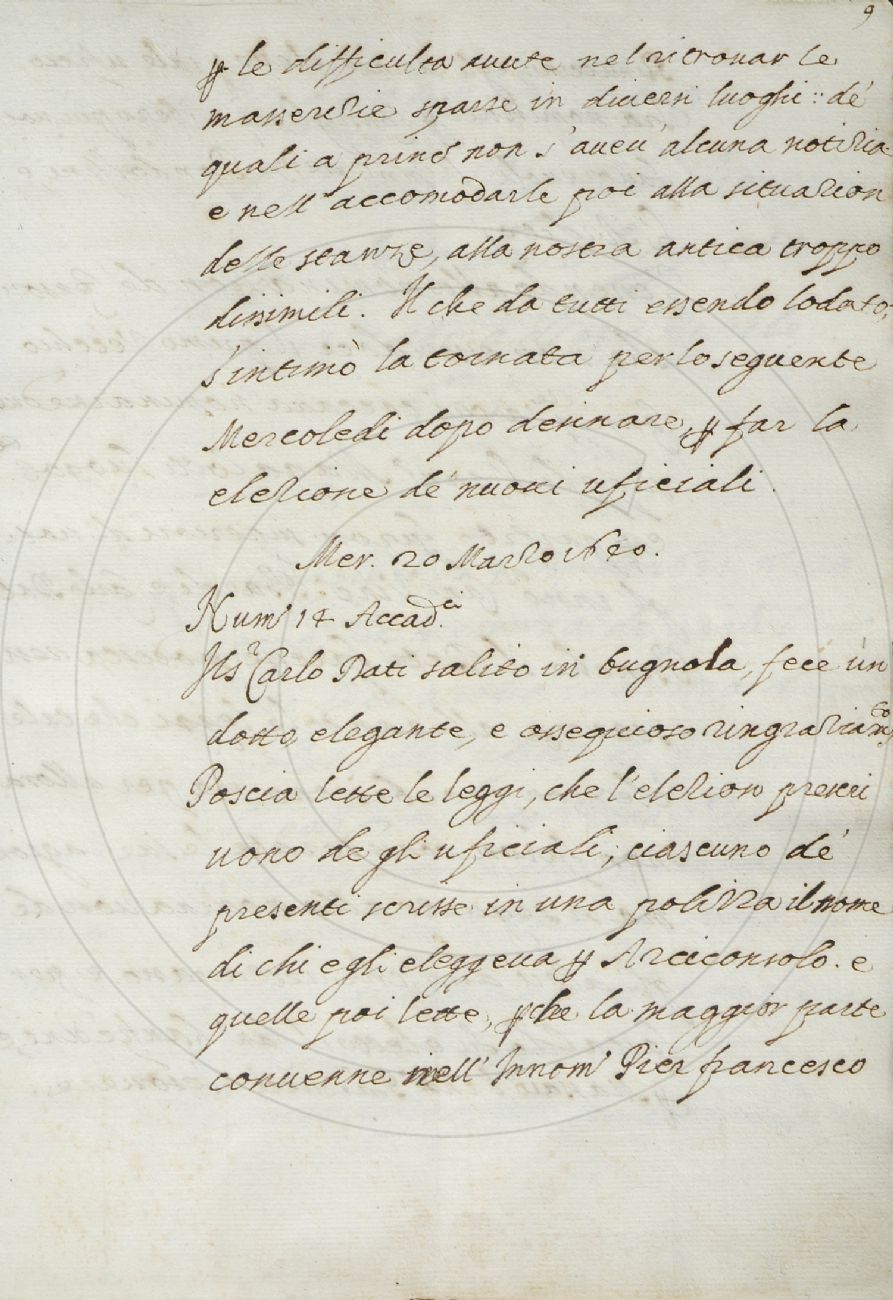 9
ꝑ le difficulta avute nel ritrovar le
masserizie sparse in diversi luoghi: de'
quali a princ.º non s'avev' alcuna notizia
e nell' accomodarle poi alla situazion
delle stanze, alla nostra antica troppo
dissimili. Il che da tutti essendo lodato,
s'intimò la tornata per lo seguente
Mercoledi dopo desinare, ꝑ far la
elezione de' nuovi uficiali.
Mer. 20 Marzo 1640.
Num.º 14 Accad.ci
Il S.r Carlo Dati salito in bugnola, fece un
dotto, elegante, e ossequioso ringraziam.to
Poscia lette le leggi, che l'elezion prescri
vono degli uficiali, ciascuno de'
presenti scrisse in una polizza il nome
di chi egli eleggeva ꝑ Arciconsolo. e
quelle poi lette, ꝑche la maggior parte
convenne nell' Innom.º Pier francesco